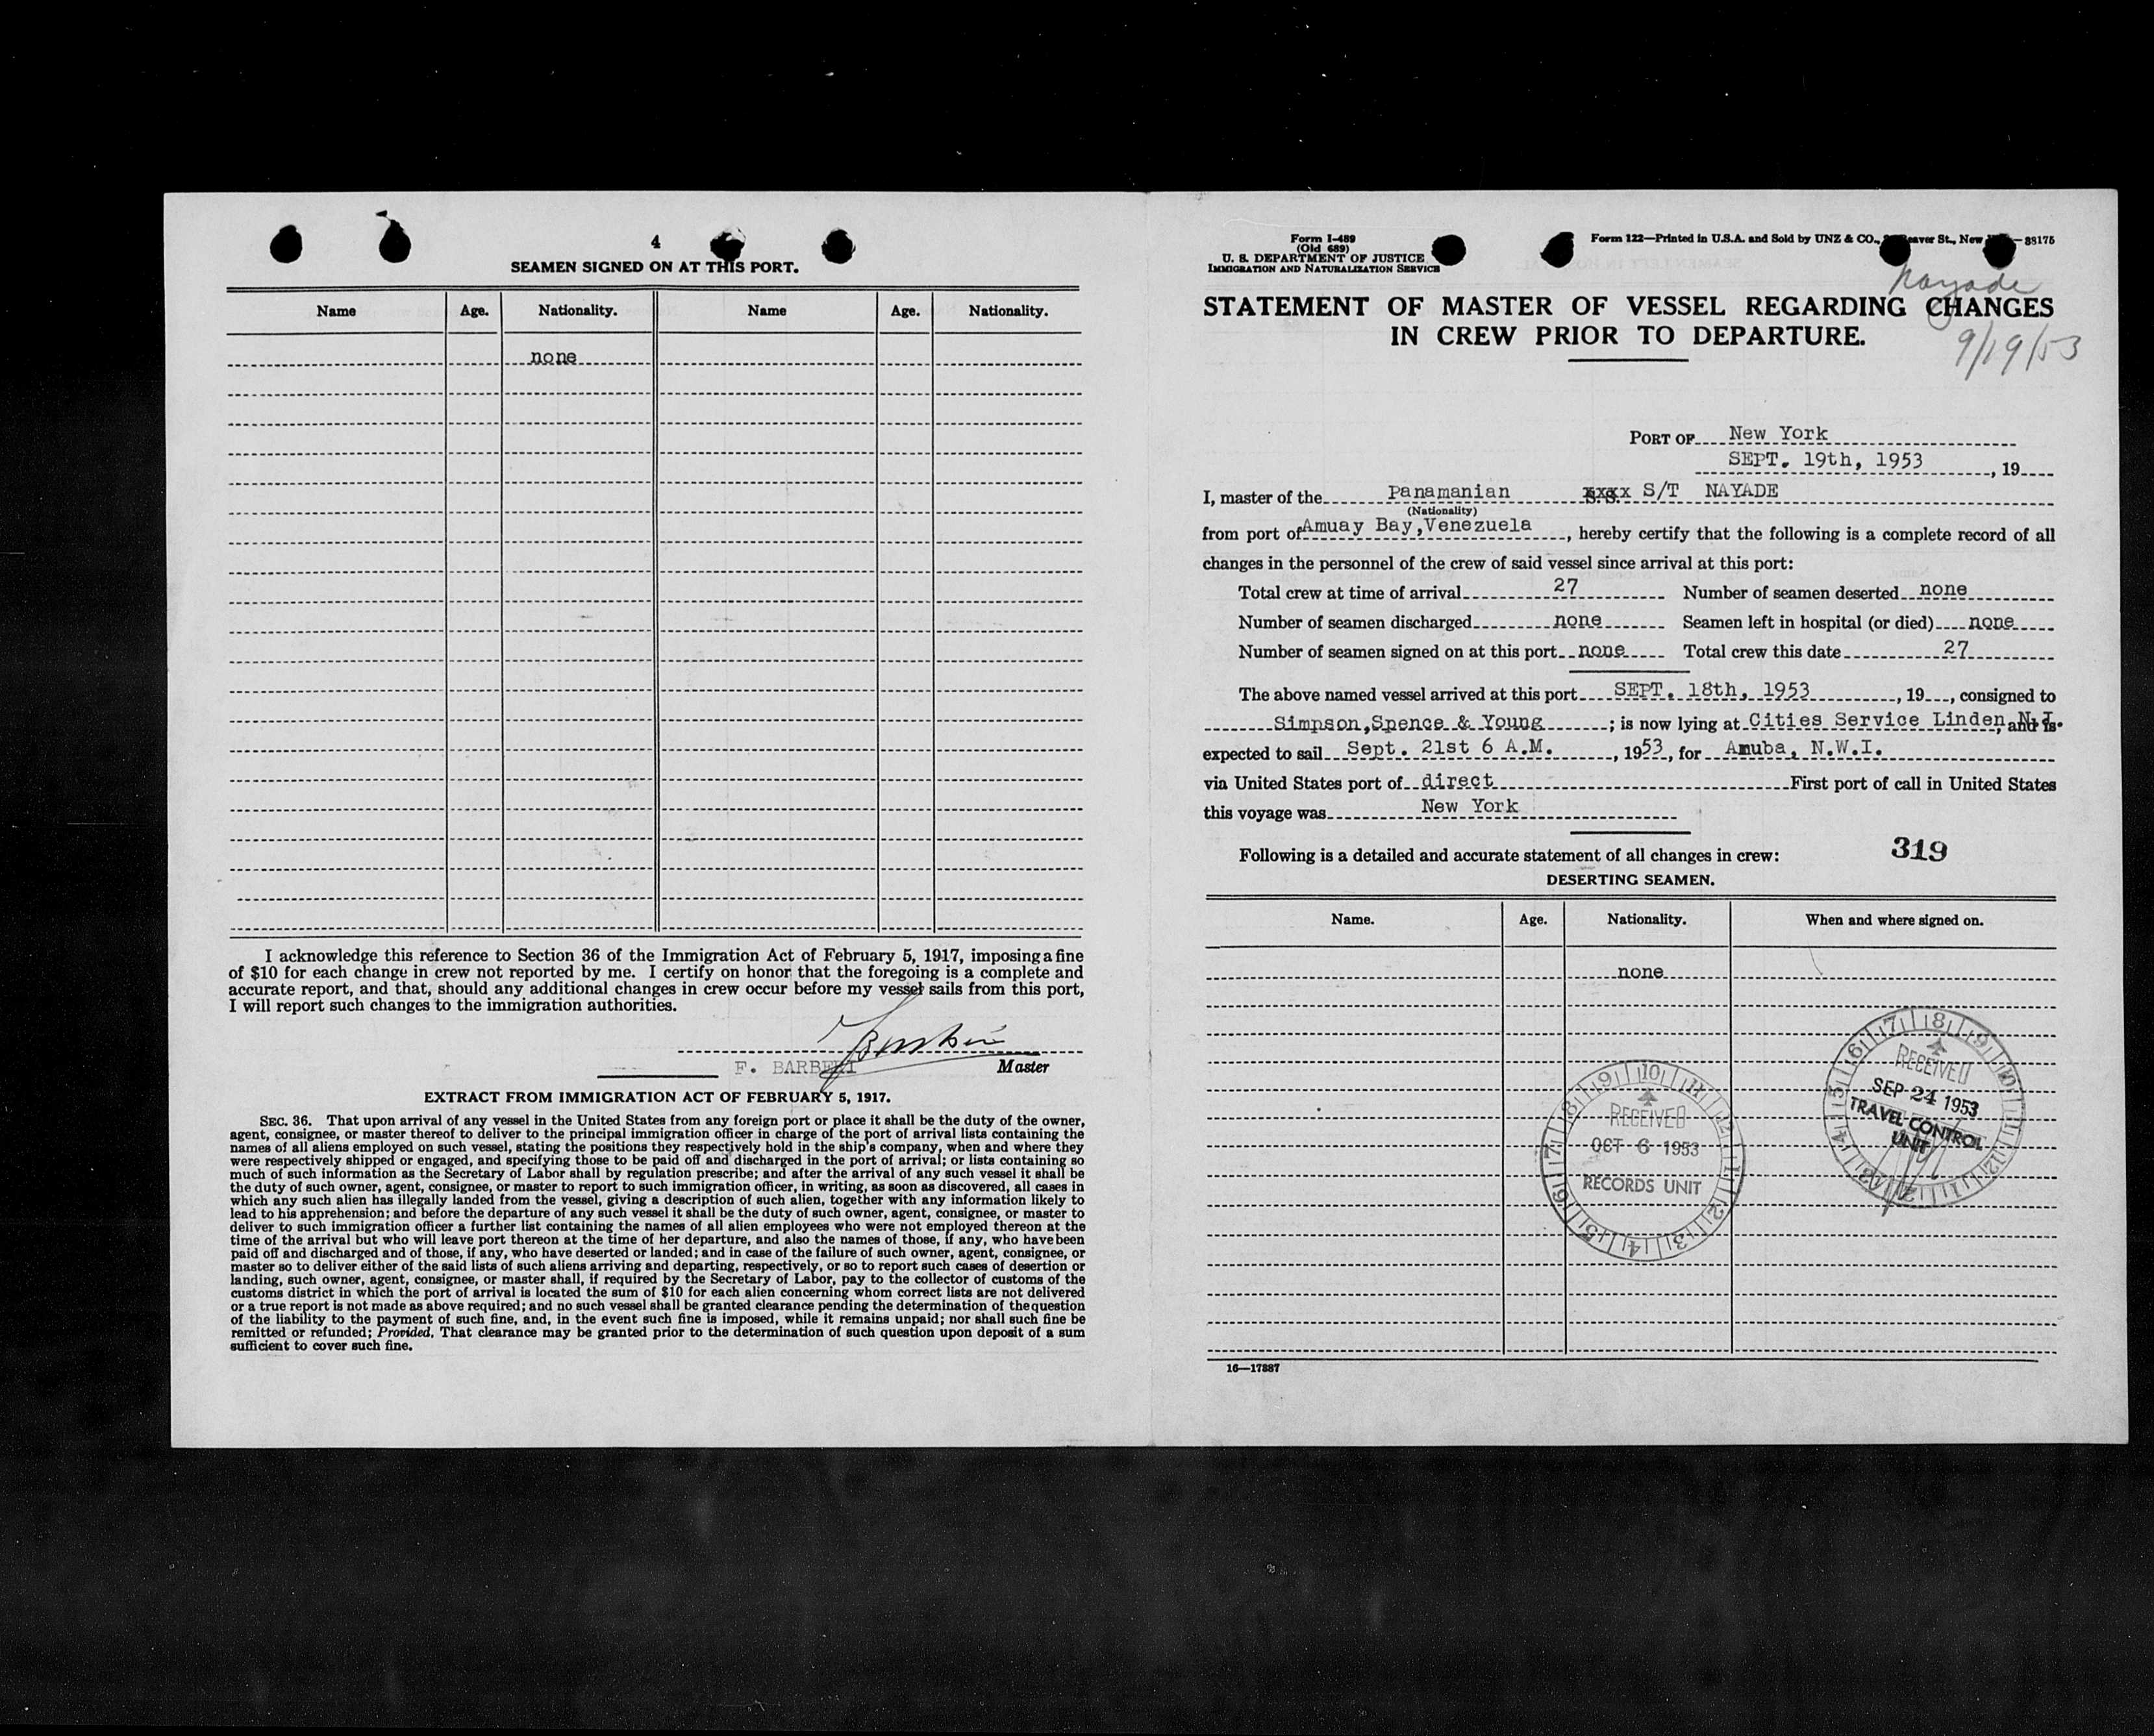 4
SEAMEN SIGNED ON AT THIS PORT.
Name Age. Nationality. Name Age. Nationality.
none
I acknowledge this reference to Section 36 of the Immigration Act of February 5, 1917, imposing a fine
of $10 for each change in crew not reported by me. I certify on honor that the foregoing is a complete and
accurate report, and that, should any additional changes in crew occur before my vessel sails from this port,
I will report such changes to the immigration authorities.
F. BARBERI Master
EXTRACT FROM IMMIGRATION ACT OF FEBRUARY 5, 1917.
SEC. 36. That upon arrival of any vessel in the United States from any foreign port or place it shall be the duty of the owner,
agent, consignee, or master thereof to deliver to the principal immigration officer in charge of the port of arrival lists containing the
names of all aliens employed on such vessel, stating the positions they respectively hold in the ship's company, when and where they
were respectively shipped or engaged, and specifying those to be paid off and discharged in the port of arrival; or lists containing so
much of such information as the Secretary of Labor shall by regulation prescribe; and after the arrival of any such vessel it shall be
the duty of such owner, agent, consignee, or master to report to such immigration officer, in writing, as soon as discovered, all cases in
which any such alien has illegally landed from the vessel, giving a description of such alien, together with any information likely to
lead to his apprehension; and before the departure of any such vessel it shall be the duty of such owner, agent, consignee, or master to
deliver to such immigration officer a further list containing the names of all alien employees who were not employed thereon at the
time of the arrival but who will leave port thereon at the time of her departure, and also the names of those, if any, who have been
paid off and discharged and of those, if any, who have deserted or landed; and in case of the failure of such owner, agent, consignee, or
master so to deliver either of the said lists of such aliens arriving and departing, respectively, or so to report such cases of desertion or
landing, such owner, agent, consignee, or master shall, if required by the Secretary of Labor, pay to the collector of customs of the
customs district in which the port of arrival is located the sum of $10 for each alien concerning whom correct lists are not delivered
or a true report is not made as above required; and no such vessel shall be granted clearance pending the determination of the question
of the liability to the payment of such fine, and, in the event such fine is imposed, while it remains unpaid; nor shall such fine be
remitted or refunded; Provided, That clearance may be granted prior to the determination of such question upon deposit of a sum
sufficient to cover such fine.
Form I-489
(Old 689)
U. S. DEPARTMENT OF JUSTICE
IMMIGRATION AND NATURALIZATION SERVICE
Form 122—Printed in U.S.A. and Sold by UNZ & CO., Beaver St., New —88175
Nayade
STATEMENT OF MASTER OF VESSEL REGARDING CHANGES
IN CREW PRIOR TO DEPARTURE.
9/19/53
PORT OF New York
SEPT. 19th, 1953, 19
I, master of the Panamanian xxxx S/T NAYADE
(Nationality)
from port of Amuay Bay, Venezuela, hereby certify that the following is a complete record of all
changes in the personnel of the crew of said vessel since arrival at this port:
Total crew at time of arrival 27 Number of seamen deserted none
Number of seamen discharged none Seamen left in hospital (or died) none
Number of seamen signed on at this port none Total crew this date 27
The above named vessel arrived at this port SEPT. 18th, 1953, 19, consigned to
Simpson, Spence & Young; is now lying at Cities Service Linden, N.J. and is
expected to sail Sept. 21st 6 A.M., 1953, for Aruba, N.W.I.
via United States port of direct First port of call in United States
this voyage was New York
Following is a detailed and accurate statement of all changes in crew: 319
DESERTING SEAMEN.
Name. Age. Nationality. When and where signed on.
none
RECEIVED
OCT 6 1953
RECORDS UNIT
RECEIVED
SEP 24 1953
TRAVEL CONTROL
UNIT
16—17887